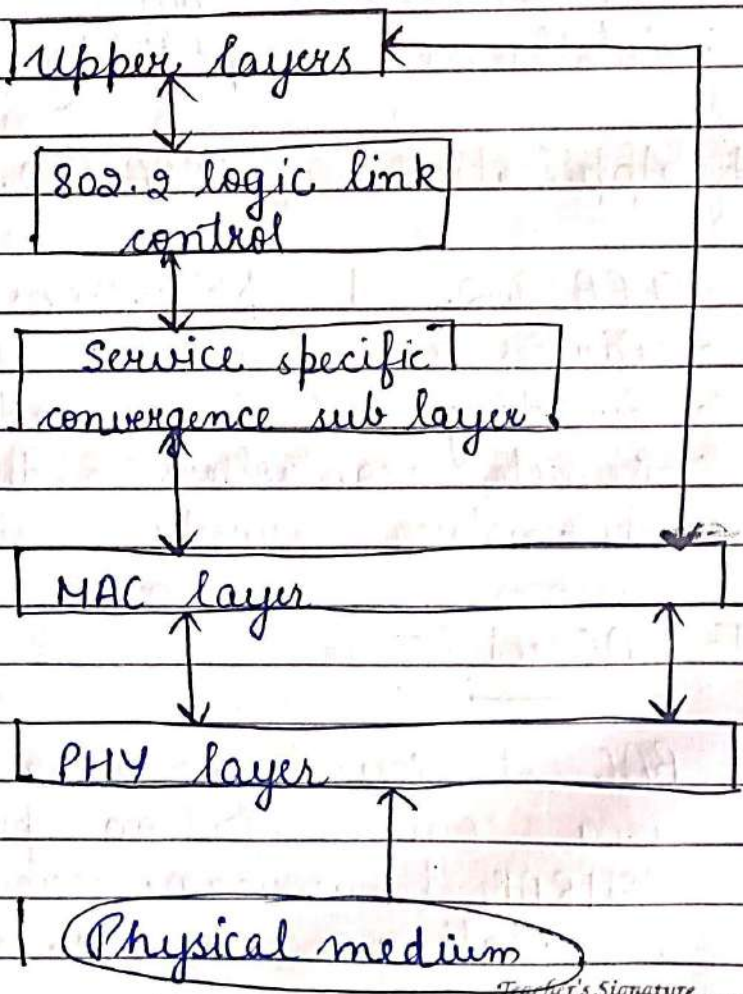 Upper layers
802.2 logic link
control
Service specific
convergence sub layer
MAC layer
PHY layer
Physical medium
Teacher's Signature